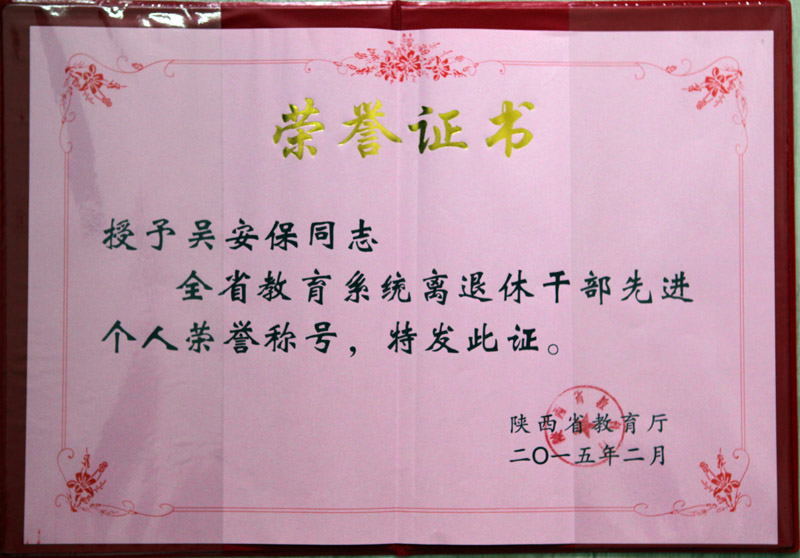 荣誉证书
授予吴安保同志
全省教育系统离退休干部先进
个人荣誉称号，特发此证。
陕西省教育厅
二〇一五年二月